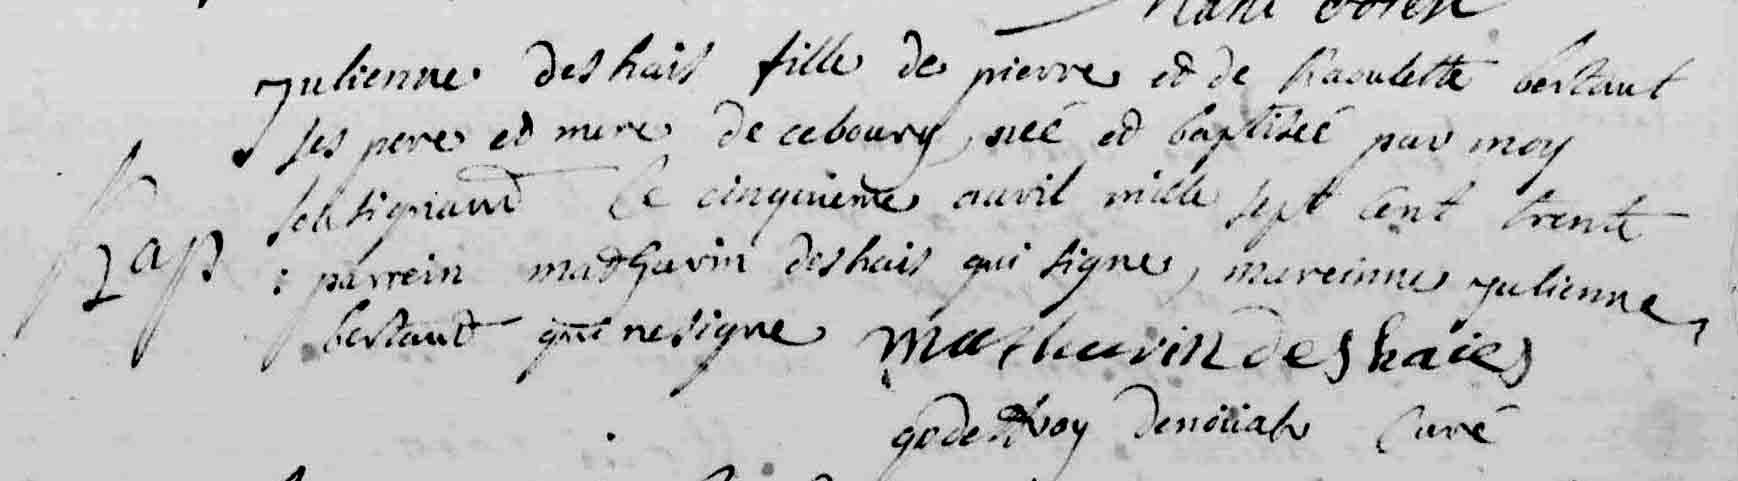 julienne deshais fille de pierre et de Raoulette bertaut
ses pere et mere de cebourg, neé et baptiseé par moy
soussignant le cinquieme auvril mille sept cent trente
Bap : parrein mathurin deshais qui signe, mareinne julienne
bertaut qui ne signe Mathurin deshaies
godefroy curé